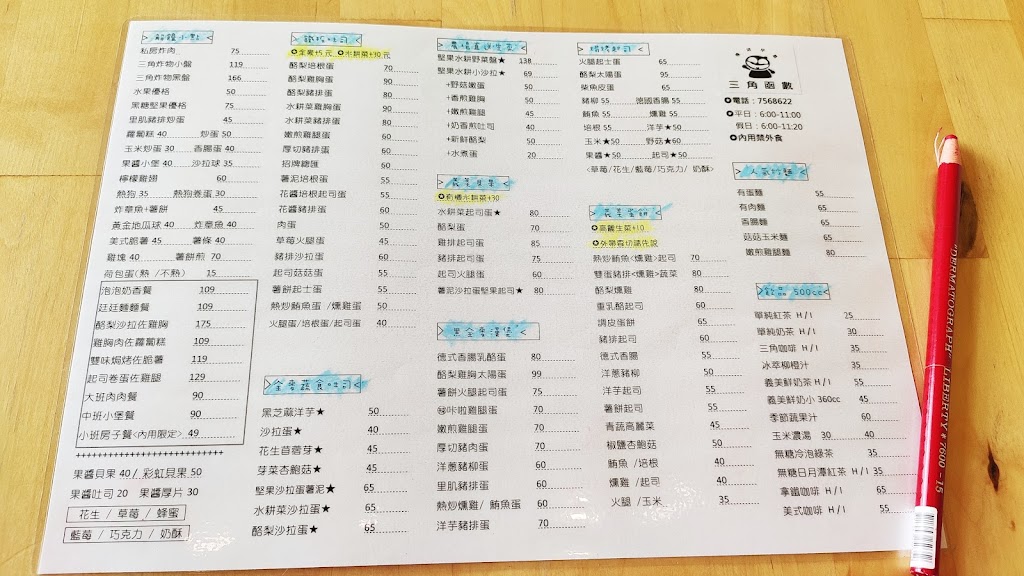 >解饞小點<
私房炸肉 75
三角炸物小盤 119
三角炸物黑盤 166
水果優格 50
黑糖堅果優格 75
里肌豬排炒蛋 45
蘿蔔糕 40 炒蛋 50
玉米炒蛋 30 香腸蛋 40
果醬小酥 40 沙拉球 35
檸檬雞翅 60
熱狗 35 熱狗卷蛋 30
炸章魚+薯餅 45
黃金地瓜球 40 炸章魚 40
美式脆薯 45 薯條 40
雞塊 40 薯餅煎 70
荷包蛋(熟 /不熟) 15
泡泡奶香餐 109
廷廷麵麵餐 109
酪梨沙拉佐雞胸 175
雞胸肉佐蘿蔔糕 109
雙味焗烤佐脆薯 119
起司卷蛋佐雞腿 129
大班肉肉餐 90
中班小堡餐 90
小班房子餐<內用限定> 49
果醬貝果 40 / 彩虹貝果 50
果醬吐司 20 果醬厚片 30
花生 / 草莓 / 蜂蜜
藍莓 / 巧克力 / 奶酥
>鐵板吐司<
✪全麥+5 元 ✪水耕菜+30 元
酪梨培根蛋 70
酪梨雞胸蛋 90
酪梨豬排蛋 80
水耕菜雞胸蛋 90
水耕菜豬排蛋 80
嫩煎雞腿蛋 60
厚切豬排蛋 60
招牌總匯 60
薯泥培根蛋 50
花醬培根起司蛋 50
花醬豬排蛋 60
肉蛋 50
草莓火腿蛋 45
豬排沙拉蛋 60
起司菇菇蛋 55
薯餅起士蛋 50
熱炒鮪魚蛋 / 燻雞蛋 50
火腿蛋/培根蛋/起司蛋 40
>全麥蔬食吐司<
黑芝蔴洋芋★ 50
沙拉蛋★ 40
花生苜蓿芽★ 45
芽菜杏鮑菇★ 45
堅果沙拉蛋薯泥★ 65
水耕菜沙拉蛋★ 65
酪梨沙拉蛋★ 65
>農場直送生菜<
堅果水耕野菜盤★ 138
堅果水耕小沙拉★ 69
+野菇嫩蛋 50
+香煎雞胸 50
+嫩煎雞腿 45
+奶香煎吐司 40
+新鮮酪梨 50
+水煮蛋 20
✪有機水耕菜+30
水耕菜起司蛋★ 80
酪梨蛋 70
雞排起司蛋 85
豬排起司蛋 75
起司火腿蛋 60
薯泥沙拉蛋堅果起司★ 80
>黑全麥漢堡<
德式香腸乳酪蛋 80
酪梨雞胸太陽蛋 99
薯餅火腿起司蛋 75
㊕咔啦雞腿蛋 70
嫩煎雞蛋 70
厚切豬肉蛋 70
洋蔥豬柳蛋 60
里肌豬排蛋 60
熱炒燻雞/ 鮪魚蛋 60
洋芋豬排蛋 70
>焗烤起司<
火腿起士蛋 65
酪梨太陽蛋 95
柴魚皮蛋 65
豬柳 55 德國香腸 55
鮪魚 55 燻雞 55
培根 55 洋芋★50
玉米★50 野菇★60
果醬★50 起司★50
<草莓/花生/藍莓/巧克力/ 奶酥>
✪高麗生菜+10
✪外帶需切請先說
熱炒鮪魚<燻雞>起司 70
雙蛋豬排<燻雞>蔬菜 80
酪梨燻雞 80
重乳酪起司 60
調皮蛋餅 65
豬排起司 60
德式香腸 55
洋蔥豬柳 55
洋芋起司 55
薯餅起司 55
青蔬高麗菜 45
椒鹽杏鮑菇 50
鮪魚 /培根 40
燻雞 /起司 40
火腿 /玉米 35
三角函數
✪電話:7568622
✪平日:6:00-11:00
假日:6:00-11:20
✪內用禁外食
>人氣炒麵<
有蛋麵 55
有肉麵 65
香腸麵 65
菇菇玉米麵 65
嫩煎雞腿麵 80
>飲品 500cc<
單純紅茶 H / I 25
單純奶茶 H / I 30
三角咖啡 H / I 35
冰萃柳橙汁 35
義美鮮奶茶 H / I 55
義美鮮奶小 360cc 45
季節蔬果汁 60
玉米濃湯 30 40
無糖冷泡綠茶 35
無糖日月潭紅茶 H / I 35
拿鐵咖啡 H / I 65
美式咖啡 H / I 55
"DERMATOGRAPH" LIBERTY★7600-15